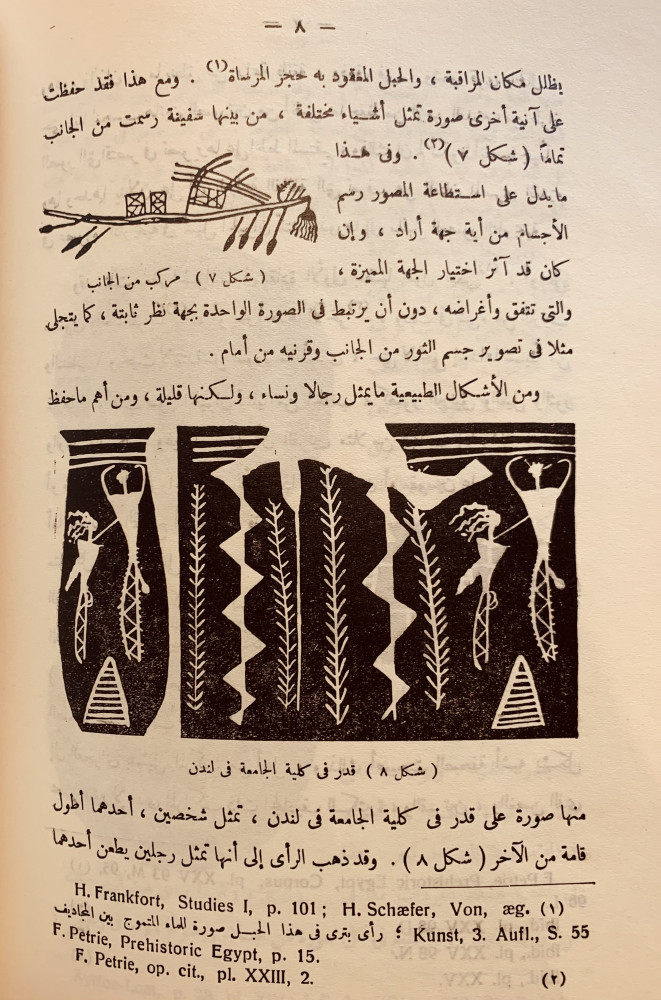 — ٨ —
يظلل مكان المراقبة ، والحبل المعقود به حجر المرساة(١) . ومع هذا فقد حفظت
على آنية أخرى صورة تمثل أشياء مختلفة ، من بينها سفينة رسمت من الجانب
تماماً ( شكل ٧ )(٢) . وفى هذا
مايدل على استطاعة المصور رسم
الأجسام من أية جهة أراد ، وإن
كان قد آثر اختيار الجهة المميزة ،
( شكل ٧ ) مركب من الجانب
والتى تتفق وأغراضه ، دون أن يرتبط فى الصورة الواحدة بجهة نظر ثابتة ، كما يتجلى
مثلا فى تصوير جسم الثور من الجانب وقرنيه من أمام .
ومن الأشكال الطبيعية مايمثل رجالا ونساء ، ولكنها قليلة ، ومن أهم ماحفظ
( شكل ٨ ) قدر فى كلية الجامعة فى لندن
منها صورة على قدر فى كلية الجامعة فى لندن ، تمثل شخصين ، أحدهما أطول
قامة من الآخر ( شكل ٨ ) . وقد ذهب الرأى إلى أنها تمثل رجلين يطعن أحدهما
(١) H. Frankfort, Studies I, p. 101 ; H. Schæfer, Von, æg.
Kunst, 3. Aufl., S. 55 ؛ رأى بترى فى هذا الحبل صورة للماء المتموج بين المجاديف
F. Petrie, Prehistoric Egypt, p. 15.
(٢) F. Petrie, op. cit., pl. XXIII, 2.